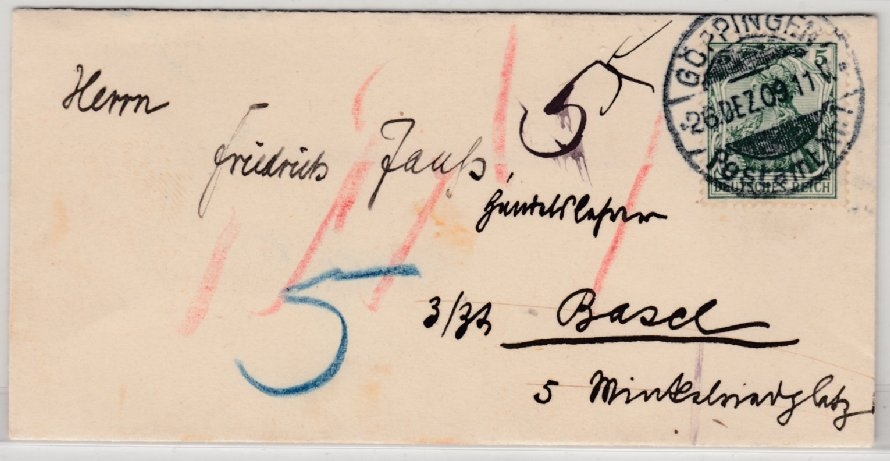 Herrn
Friedrich Jauß
Handelslehrer
z/Zt Basel
5 Winkelriedplatz
5
5
GÖPPINGEN
26.DEZ.09.11
Postamt
5
DEUTSCHES REICH